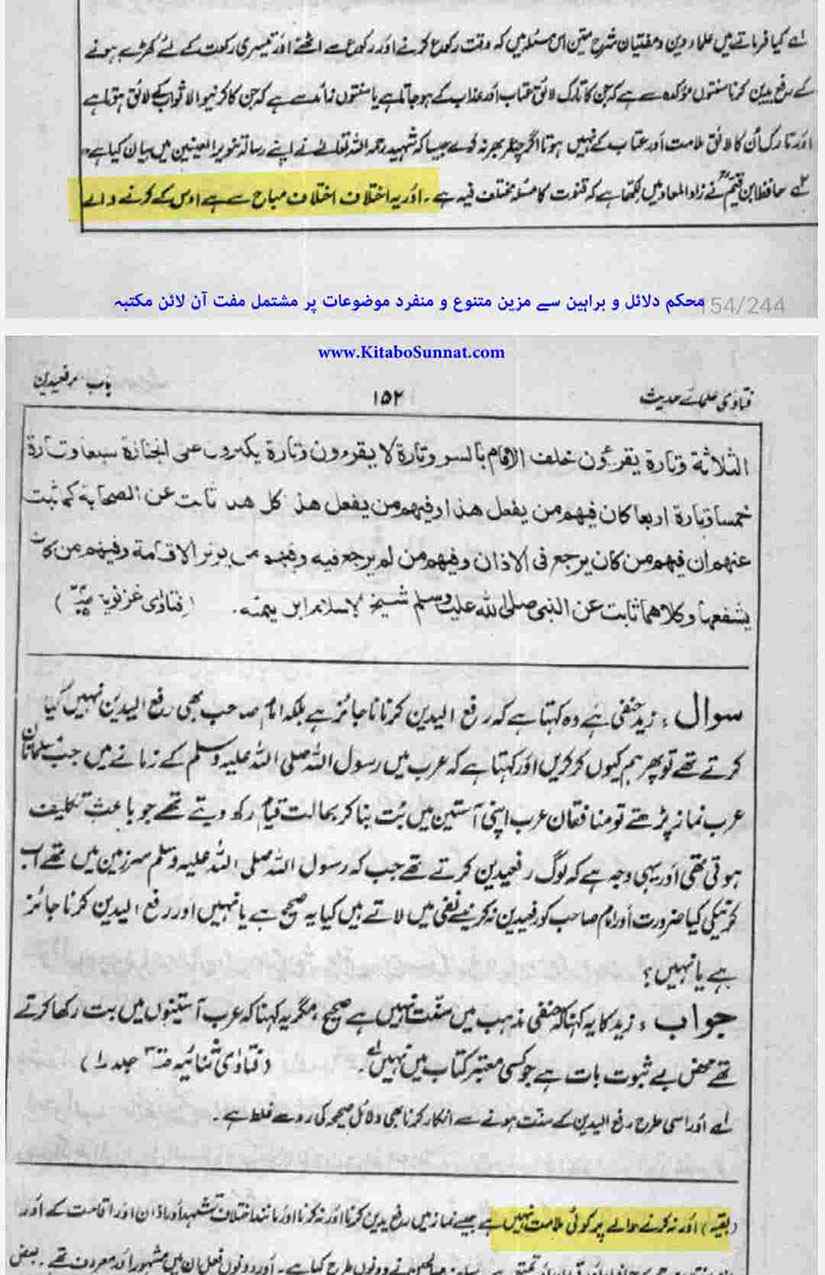 لے کیا فرماتے ہیں علماء دین و مفتیان شرح متین اس مسئلہ میں کہ وقت رکوع کرنے اور رکوع سے اٹھنے اور تیسری رکوت کے لئے کھڑے ہونے
کے رفع یدین کرنا سنتوں مؤکدہ سے ہے کہ جن کا تارک لائق عتاب اور عذاب کے ہوجاتا ہے یا سنتوں زائد سے ہے کہ جن کا کرنیوالا ثواب کے لائق ہوتا ہے
اور تارک اُن کا لائق ملامت اور عتاب کے نہیں ہوتا اگرچہ عمر بھر نہ کرے جیسا کہ شہید رحمہ اللہ تعالےٰ نے اپنے رسالہ تنویر العینین میں بیان کیا ہے۔
حافظ ابن قیمؒ نے زاد المعاد میں لکھا ہے کہ قنوت کا مسئلہ مختلف فیہ ہے۔ اور یہ اختلاف اختلاف مباح سے ہے اوس کے کرنے والے
محکم دلائل و براہین سے مزین متنوع و منفرد موضوعات پر مشتمل مفت آن لائن مکتبہ
154/244
www.KitaboSunnat.com
فتاویٰ علمائے حدیث
۱۵۲
باب رفعیدین
الثلاثة وتارة يقرءون خلف الامام بالسر وتارة لا يقرءون وتارة يكبرون على الجنازة سبعا وتارة
خمسا وتارة اربعا كان فيهم من يفعل هذا وفيهم من يفعل هذا كل هذا ثابت عن الصحابة كما ثبت
عنهم ان فيهم من كان يرجع فى الاذان وفيهم من لم يرجع فيه وفيهم من يوتر الاقامة وفيهم من كان
يشفعها وكلاهما ثابت عن النبى صلى الله عليه وسلم شيخ الاسلام ابن تيميه۔ (فتاوٰی غزنویہ
سوال: زید حنفی ہے وہ کہتا ہے کہ رفع الیدین کرنا ناجائز ہے بلکہ امام صاحب بھی رفع الیدین نہیں کیا
کرتے تھے تو پھر ہم کیوں کر کریں اور کہتا ہے کہ عرب میں رسول اللہ صلی اللہ علیہ وسلم کے زمانے میں جب مسلمانان
عرب نماز پڑھتے تو منافقان عرب اپنی آستین میں بُت بنا کر بحالت قیام رکھ دیتے تھے جو باعثِ تکلیف
ہوتی تھی اور یہی وجہ ہے کہ لوگ رفعیدین کرتے تھے جب کہ رسول اللہ صلی اللہ علیہ وسلم سرزمین میں تھے اب
کرنیکی کیا ضرورت اور امام صاحب کو رفعیدین نہ کرنیسے نفی میں لاتے ہیں کیا یہ صحیح ہے یا نہیں اور رفع الیدین کرنا جائز
ہے یا نہیں؟
جواب: زید کا یہ کہنا کہ حنفی مذہب میں سنت نہیں ہے صحیح، مگر یہ کہنا کہ عرب آستینوں میں بت رکھا کرتے
تھے محض بے ثبوت بات ہے جو کسی معتبر کتاب میں نہیں ہے۔ (فتاوٰی ثنائیہ جلد ۱)
لے اور اسی طرح رفع الیدین کے سنت ہونے سے انکار کرنا بھی دلائل صحیحہ کی رو سے غلط ہے۔
(بقیہ) اور نہ کرنے والے پر کوئی ملامت نہیں ہے جیسے نماز میں رفع یدین کرنا اور نہ کرنا اور مانند اختلاف تشہد اور اذان اور اقامت کے اور
دونوں طرح کیا ہے۔ اور دونوں فعل ان میں مشہور اور معروف تھے۔ بعض